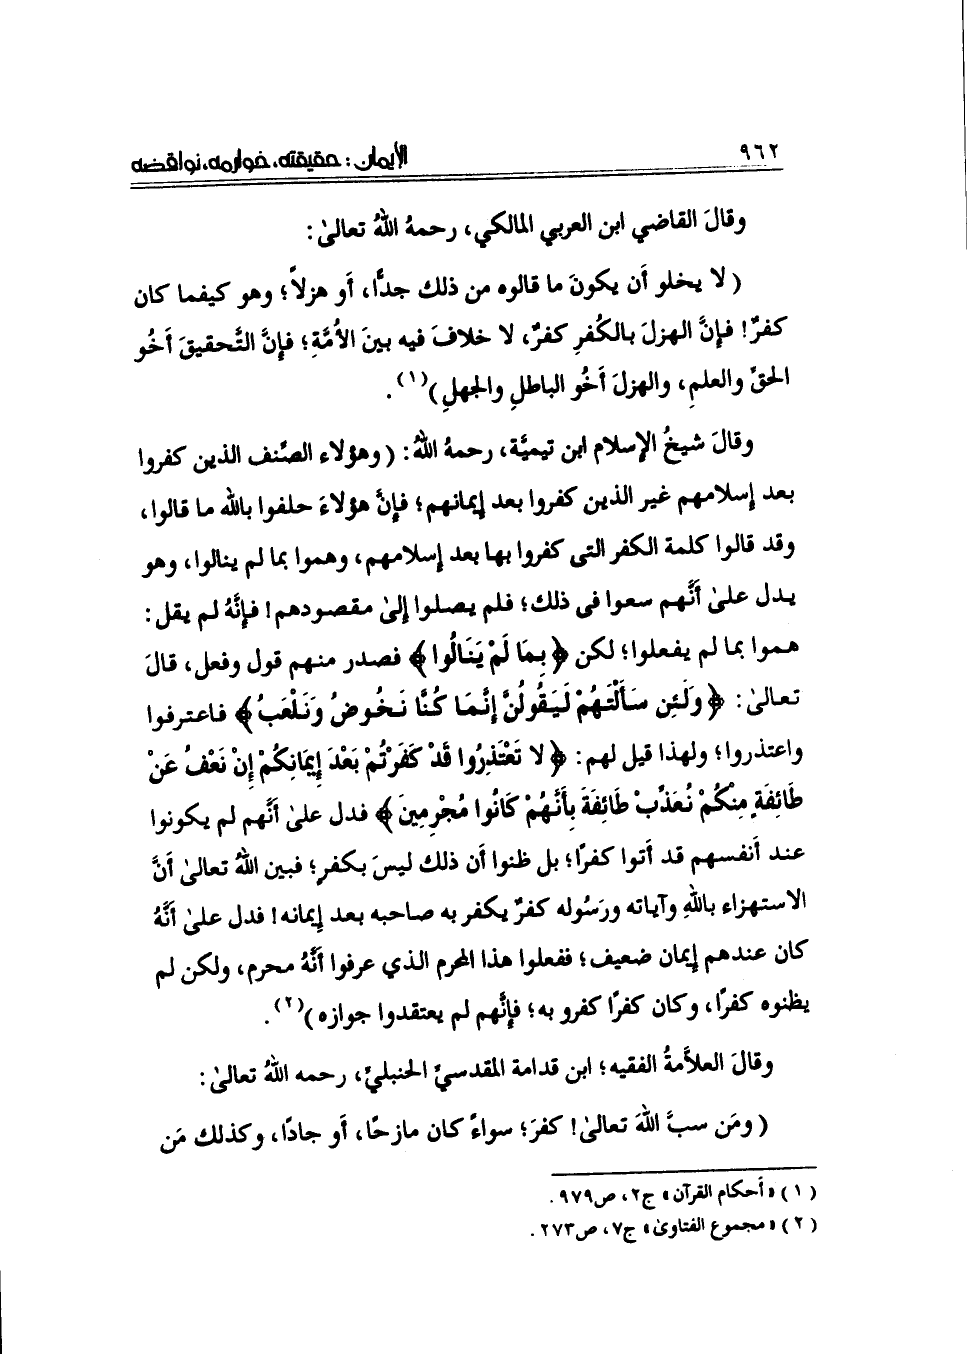 ٩٦٢
الأيمان : حقيقته، خوارمه، نواقضه
وقالَ القاضي ابن العربي المالكي، رحمهُ اللهُ تعالىٰ :
( لا يخلو أن يكونَ ما قالوه من ذلك جدًّا، أو هزلاً؛ وهو كيفما كان
كفرٌ! فإنَّ الهزلَ بالكُفرِ كفرٌ، لا خلافَ فيه بينَ الأُمَّةِ؛ فإنَّ التَّحقيقَ أخُو
الحقِّ والعلمِ، والهزلَ أخُو الباطلِ والجهلِ )(١) .
وقالَ شيخُ الإسلام ابن تيميَّة، رحمهُ اللهُ : ( وهؤلاء الصِّنف الذين كفروا
بعد إسلامهم غير الذين كفروا بعد إيمانهم؛ فإنَّ هؤلاءَ حلفوا بالله ما قالوا،
وقد قالوا كلمة الكفر التى كفروا بها بعد إسلامهم، وهموا بما لم ينالوا، وهو
يدل علىٰ أنَّهم سعوا فى ذلك؛ فلم يصلوا إلىٰ مقصودهم! فإنَّهُ لم يقل :
هموا بما لم يفعلوا؛ لكن ﴿ بِمَا لَمْ يَنَالُوا ﴾ فصدر منهم قول وفعل، قالَ
تعالىٰ : ﴿ وَلَئِن سَأَلْتَهُمْ لَيَقُولُنَّ إِنَّمَا كُنَّا نَخُوضُ وَنَلْعَبُ ﴾ فاعترفوا
واعتذروا؛ ولهذا قيل لهم : ﴿ لا تَعْتَذِرُوا قَدْ كَفَرْتُم بَعْدَ إِيمَانِكُمْ إِنْ نَعْفُ عَنْ
طَائِفَةٍ مِنْكُمْ نُعَذِّبْ طَائِفَةَ بِأَنَّهُمْ كَانُوا مُجْرِمِينَ ﴾ فدل علىٰ أنَّهم لم يكونوا
عند أنفسهم قد أتوا كفرًا؛ بل ظنوا أن ذلك ليسَ بكفرٍ؛ فبين اللهُ تعالىٰ أنَّ
الاستهزاء باللهِ وآياته ورَسُوله كفرٌ يكفر به صاحبه بعد إيمانه! فدل علىٰ أنَّهُ
كان عندهم إيمان ضعيف؛ ففعلوا هذا المحرم الذي عرفوا أنَّهُ محرم، ولكن لم
يظنوه كفرًا، وكان كفرًا كفرو به؛ فإنَّهم لم يعتقدوا جوازه )(٢) .
وقالَ العلاَّمةُ الفقيه؛ ابن قدامة المقدسيِّ الحنبليِّ، رحمه اللهُ تعالىٰ :
( ومَن سبَّ اللهَ تعالىٰ! كفرَ؛ سواءً كان مازحًا، أو جادًا، وكذلك مَن
( ١ ) « أحكام القرآن » ج٢، ص٩٧٩ .
( ٢ ) « مجموع الفتاوىٰ » ج٧، ص٢٧٣ .